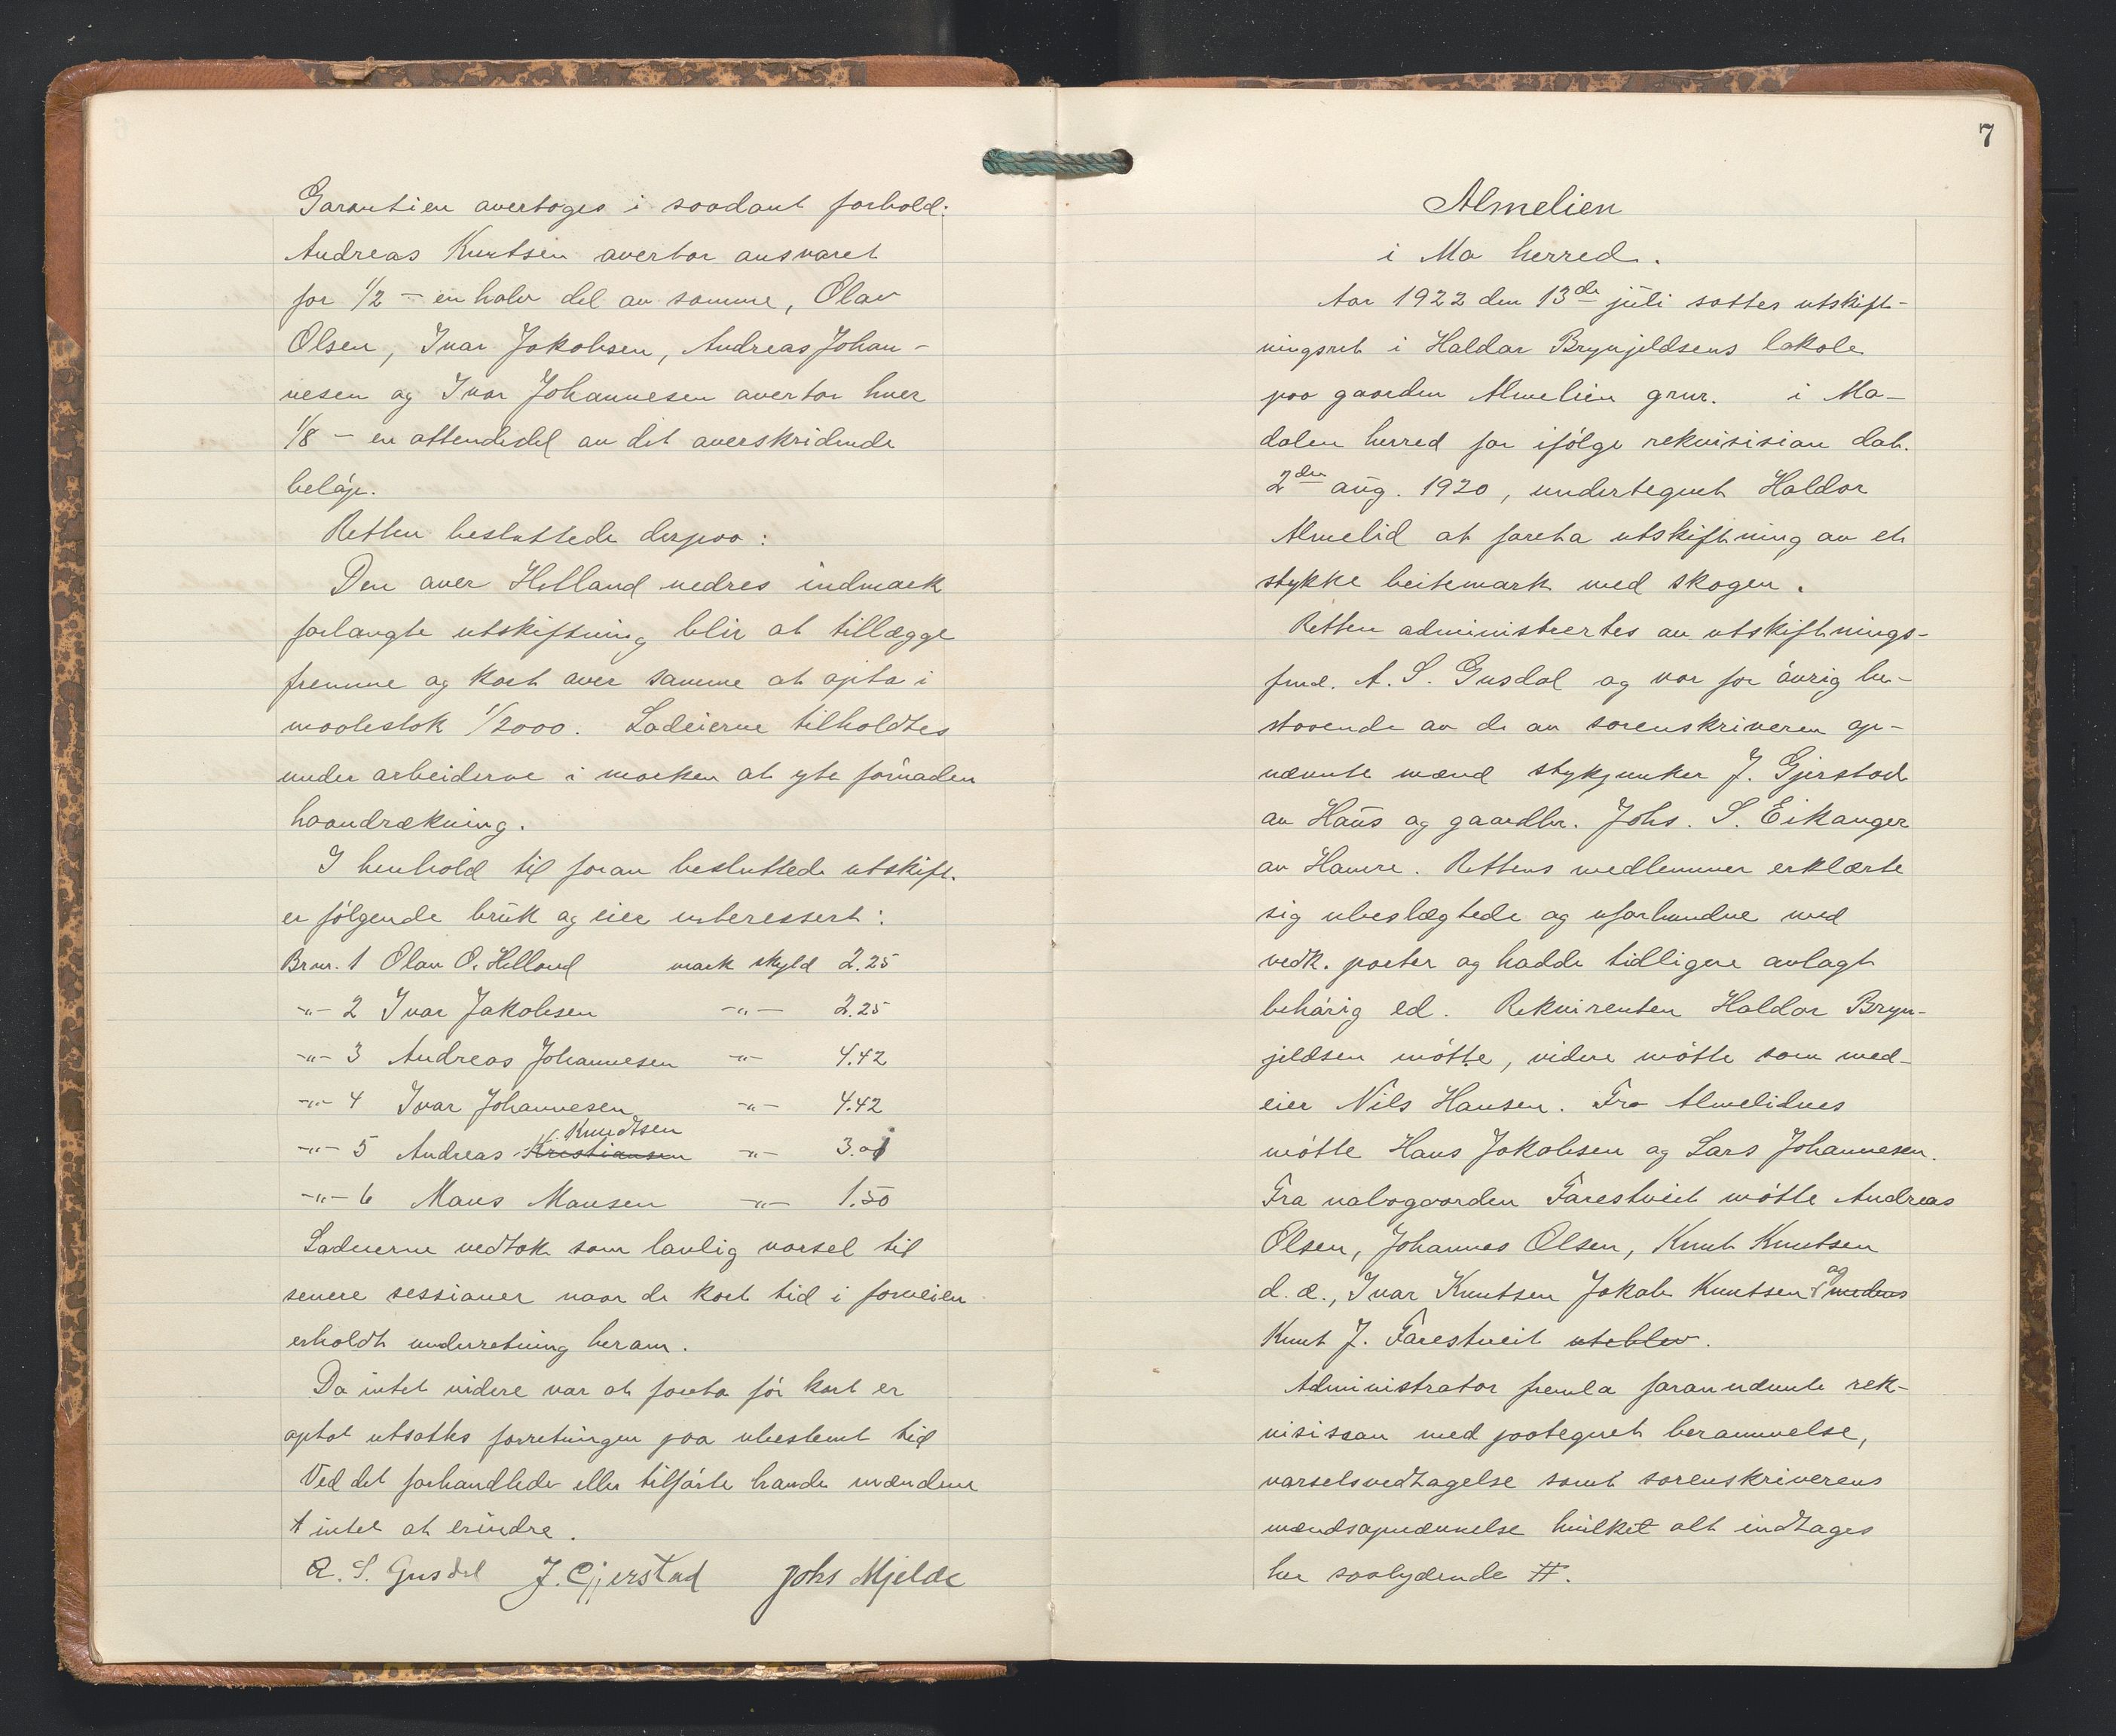 Garantien overtoges i saadant forhold:
Andreas Knutsen overtar ansvaret
for 1/2 - en halv del av samme, Olav
Olsen, Ivar Jakobsen, Andreas Johan-
nesen og Ivar Johannesen overtar hver
1/8 - en ottendedel av det overskridende
beløp.
Retten besluttede derpaa:
Den over Helland nedres indmark
forlangte utskiftning blir at tillægge
fremme og kart over samme at opta i
maalestok 1/2000. Lodeierne tilholdtes
under arbeiderne i marken at yte fornøden
haandrækning.
I henhold til foran besluttede utskift.
er følgende bruk og eier interessert:
Brnr. 1 Olav O. Helland mark skyld 2.25
-"- 2 Ivar Jakobsen -"- 2.25
-"- 3 Andreas Johannesen -"- 4.42
-"- 4 Ivar Johannesen -"- 4.42
Knudtsen
-"- 5 Andreas Kristiansen -"- 3.01
-"- 6 Mans Mansen -"- 1.50
Lodeierne vedtok som lovlig varsel til
senere sessioner naar de kort tid i forveien
erholdt underretning herom.
Da intet videre var at foreta før kart er
optat utsattes forretningen paa ubestemt tid
Ved det forhandlede eller tilførte havde mændene
intet at erindre.
A. S. Gusdal J. Gjerstad Johs Mjelde
7
Almelien
i Mo herred.
Aar 1922 den 13de juli sattes utskift-
ningsret i Haldor Brynjeldsens lokale
paa gaarden Almelien gnr. i Mo-
dalen herred for ifølge rekvisision dat.
2den aug. 1920, undertegnet Haldor
Almelid at foreta utskiftning av et
stykke beitemark med skogen.
Retten administrertes av utskiftnings-
fmd. A. S. Gusdal og var for øvrig be-
staaende av de av sorenskriveren op-
nævnte mænd stykjunker J. Gjerstad
av Haus og gaardbr. Johs. S. Eikanger
av Hamre. Rettens medlemmer erklærte
sig ubeslægtede og uforbundne med
vedk. parter og hadde tidligere avlagt
behørig ed. Rekvirenten Haldor Bryn-
jeldsen møtte, videre møtte som med-
eier Nils Hansen. Fra Almelidnes
møtte Hans Jakobsen og Lars Johannesen.
Fra nabogaarden Farestveit møtte Andreas
Olsen, Johannes Olsen, Knut Knutsen
og
d. æ., Ivar Knutsen Jakob Knutsen medens
Knut J. Farestveit uteblev.
Administrator fremla forannævnte rek-
visision med paategnet berammelse,
varselsvedtagelse samt sorenskriverens
mændsopnævnelse hvilket alt indtages
her saalydende #.